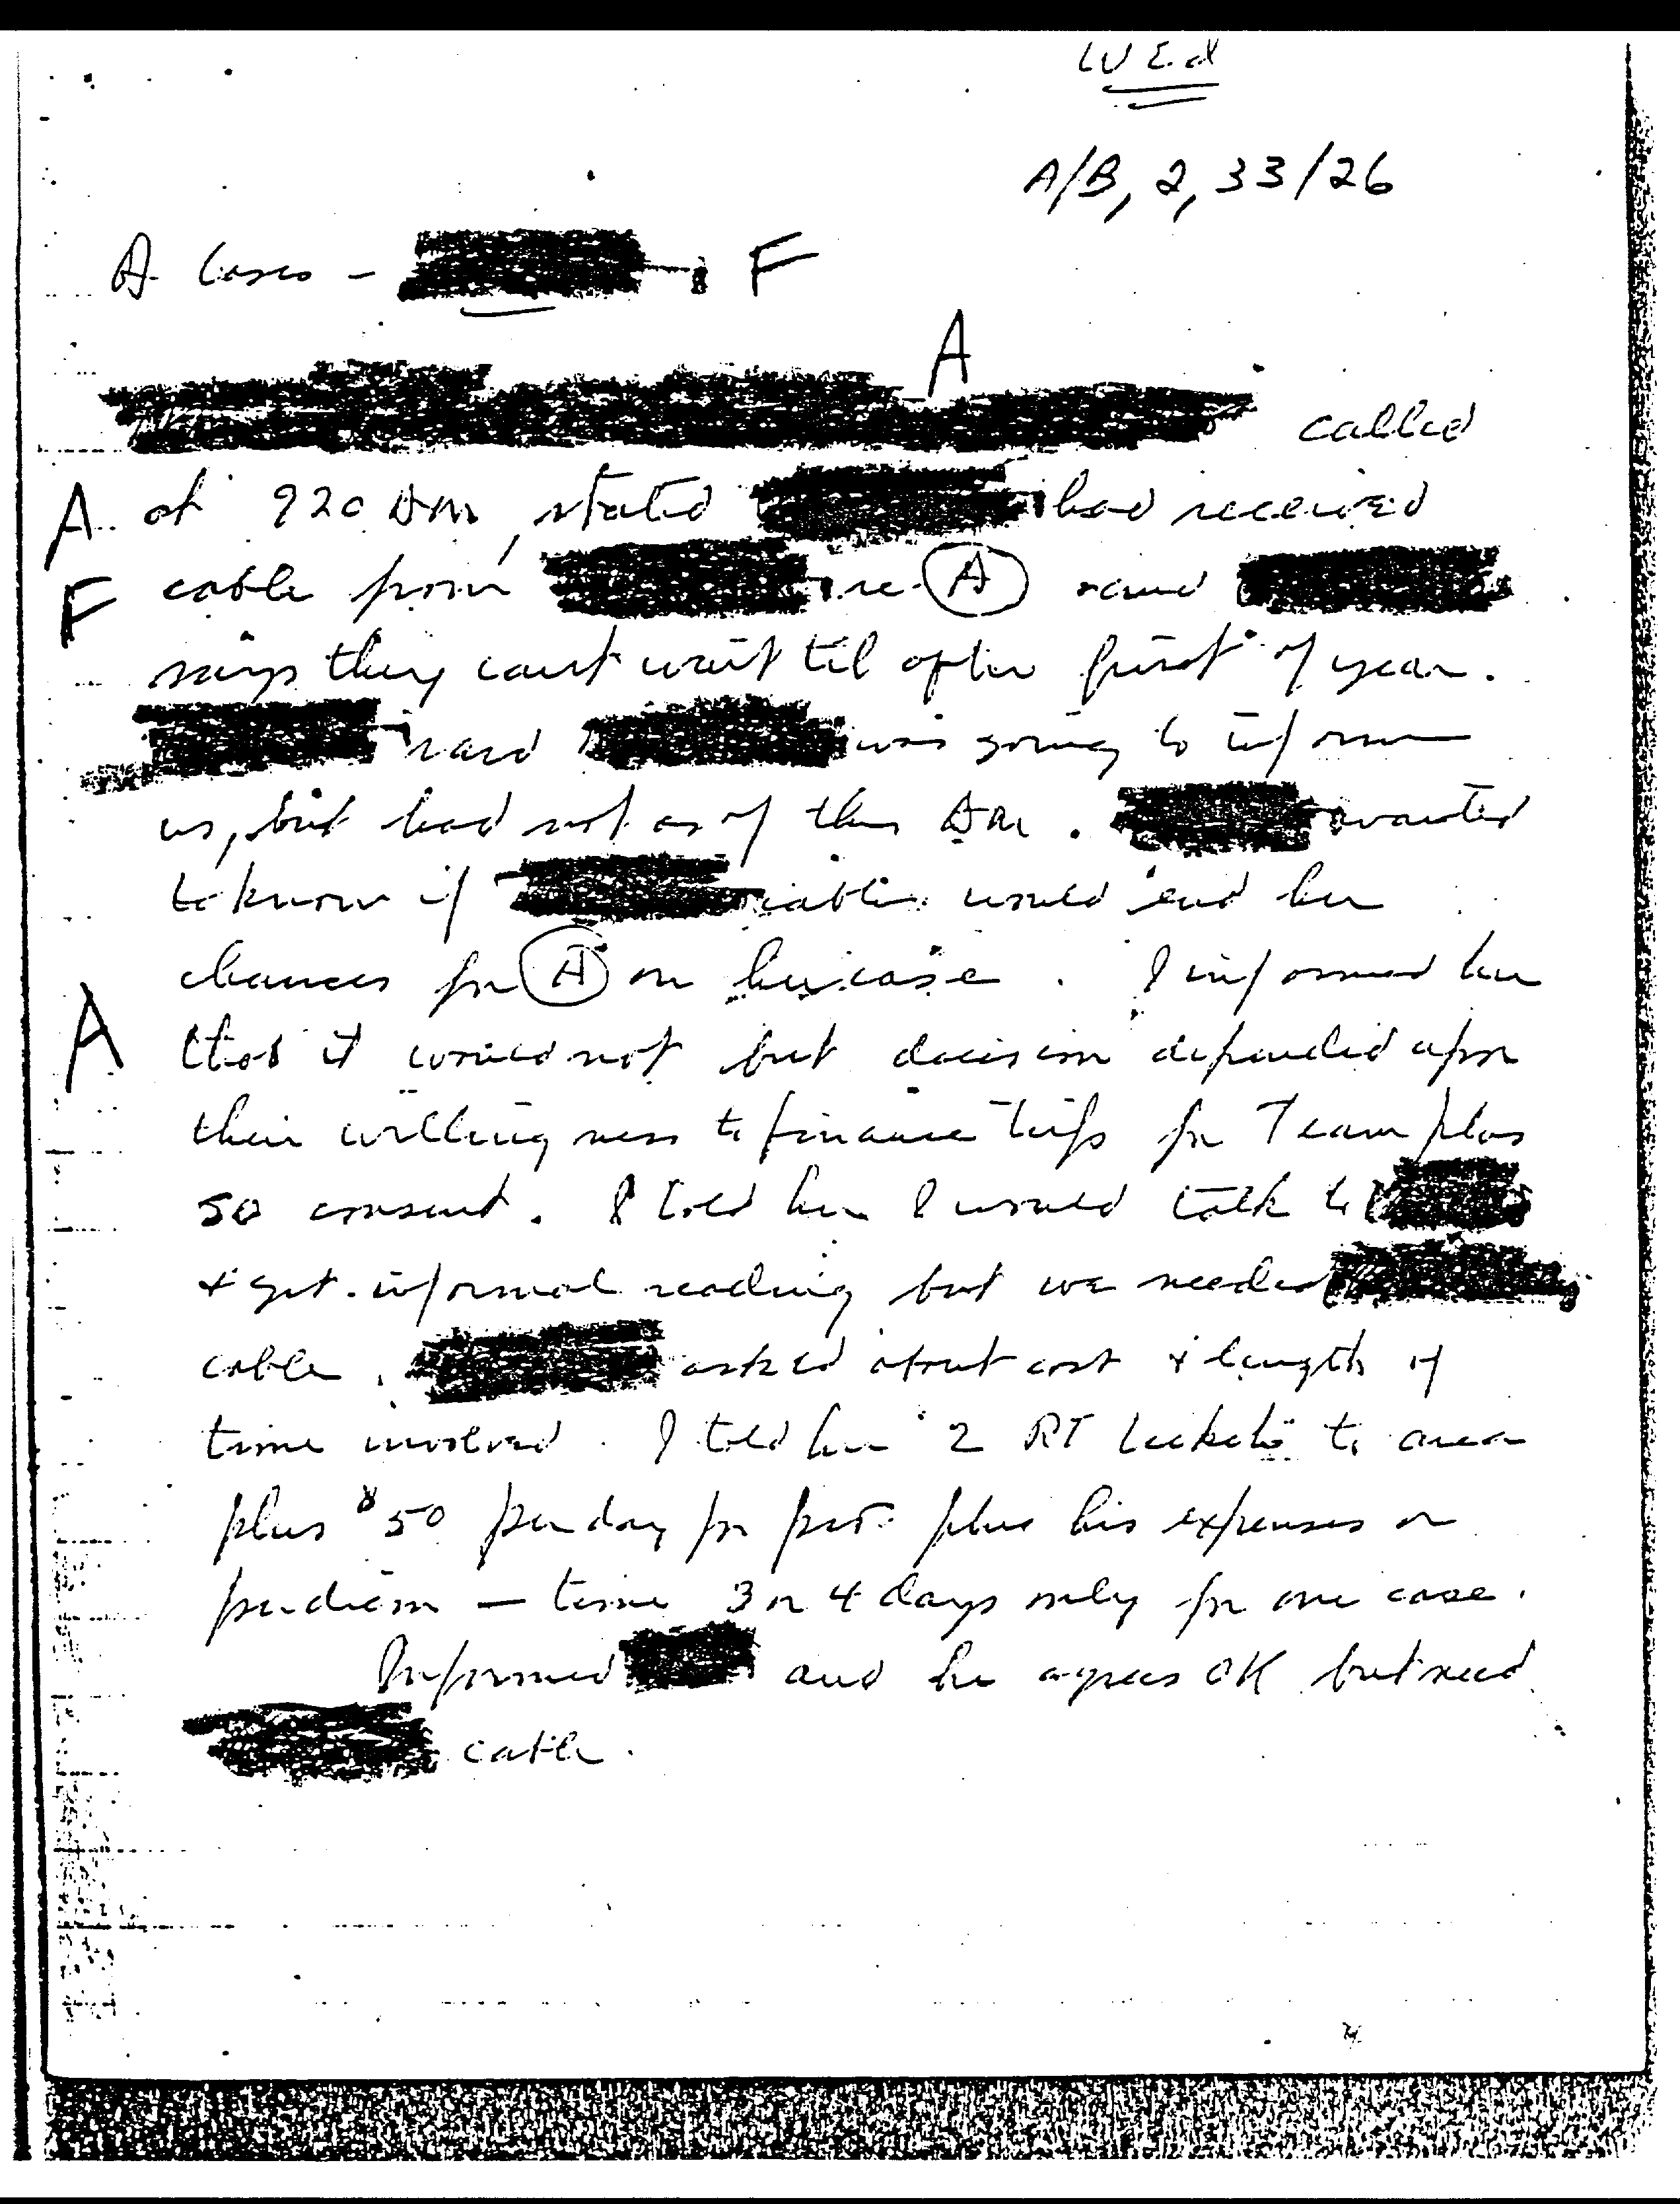 WEd
A/B, 2, 33/26
A Cases - F
A
called
A at 920 AM, stated had received
F cable from re A and
says they can't wait til after first of year.
said was going to inform
us, but had not as of this AM. wanted
to know if cable would end her
chances for A on her case. I informed her
A that it would not but decision depended upon
their willingness to finance trips for Team plus
SO consent. I told her I would talk to
+ get informal reading but we needed
cable. asked about cost + length of
time involved. I told her 2 RT tickets to area
plus $50 per day for plus his expenses or
perdiem — time 3 or 4 days only for one case.
Informed and he agrees OK but need
cable.